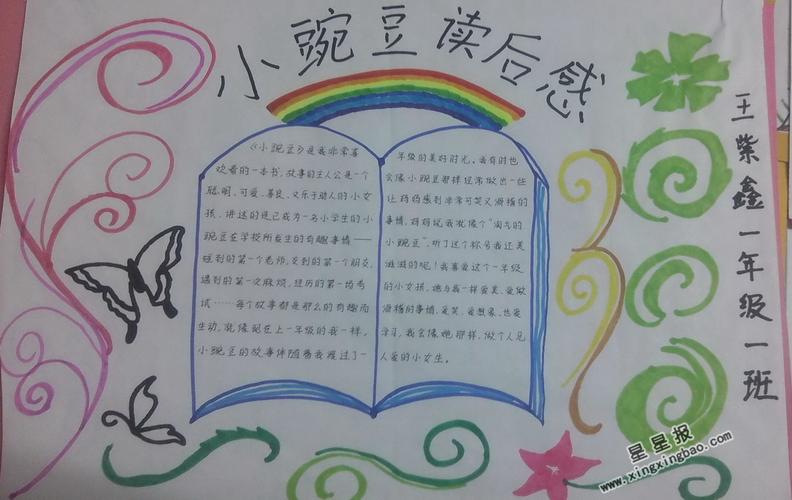 小豌豆读后感
《小豌豆》是我非常喜
欢看的一本书,故事的主人公是一个
聪明、可爱、善良、又乐于助人的小女
孩,讲述的是已成为一名小学生的小
豌豆在学校所发生的有趣事情——
碰到的第一个老师,交到的第一个朋友,
遇到的第一次麻烦,经历的第一场考
试……每个故事都是那么的有趣而
生动,就像现在上一年级的我一样。
小豌豆的故事伴随着我度过了一
年级的美好时光。我有时也
会像小豌豆那样经常做出一些
让妈妈感到非常可笑又滑稽的
事情,妈妈说我就像个“淘气的
小豌豆”,听了这个称号我还美
滋滋的呢!我喜爱这个一年级
的小女孩,她与我一样爱美、爱做
滑稽的事情、爱笑、爱想象、也爱
学习,我会像她那样,做个人见
人爱的小女生。
王紫鑫一年级一班
星星报
www.xingxingbao.com